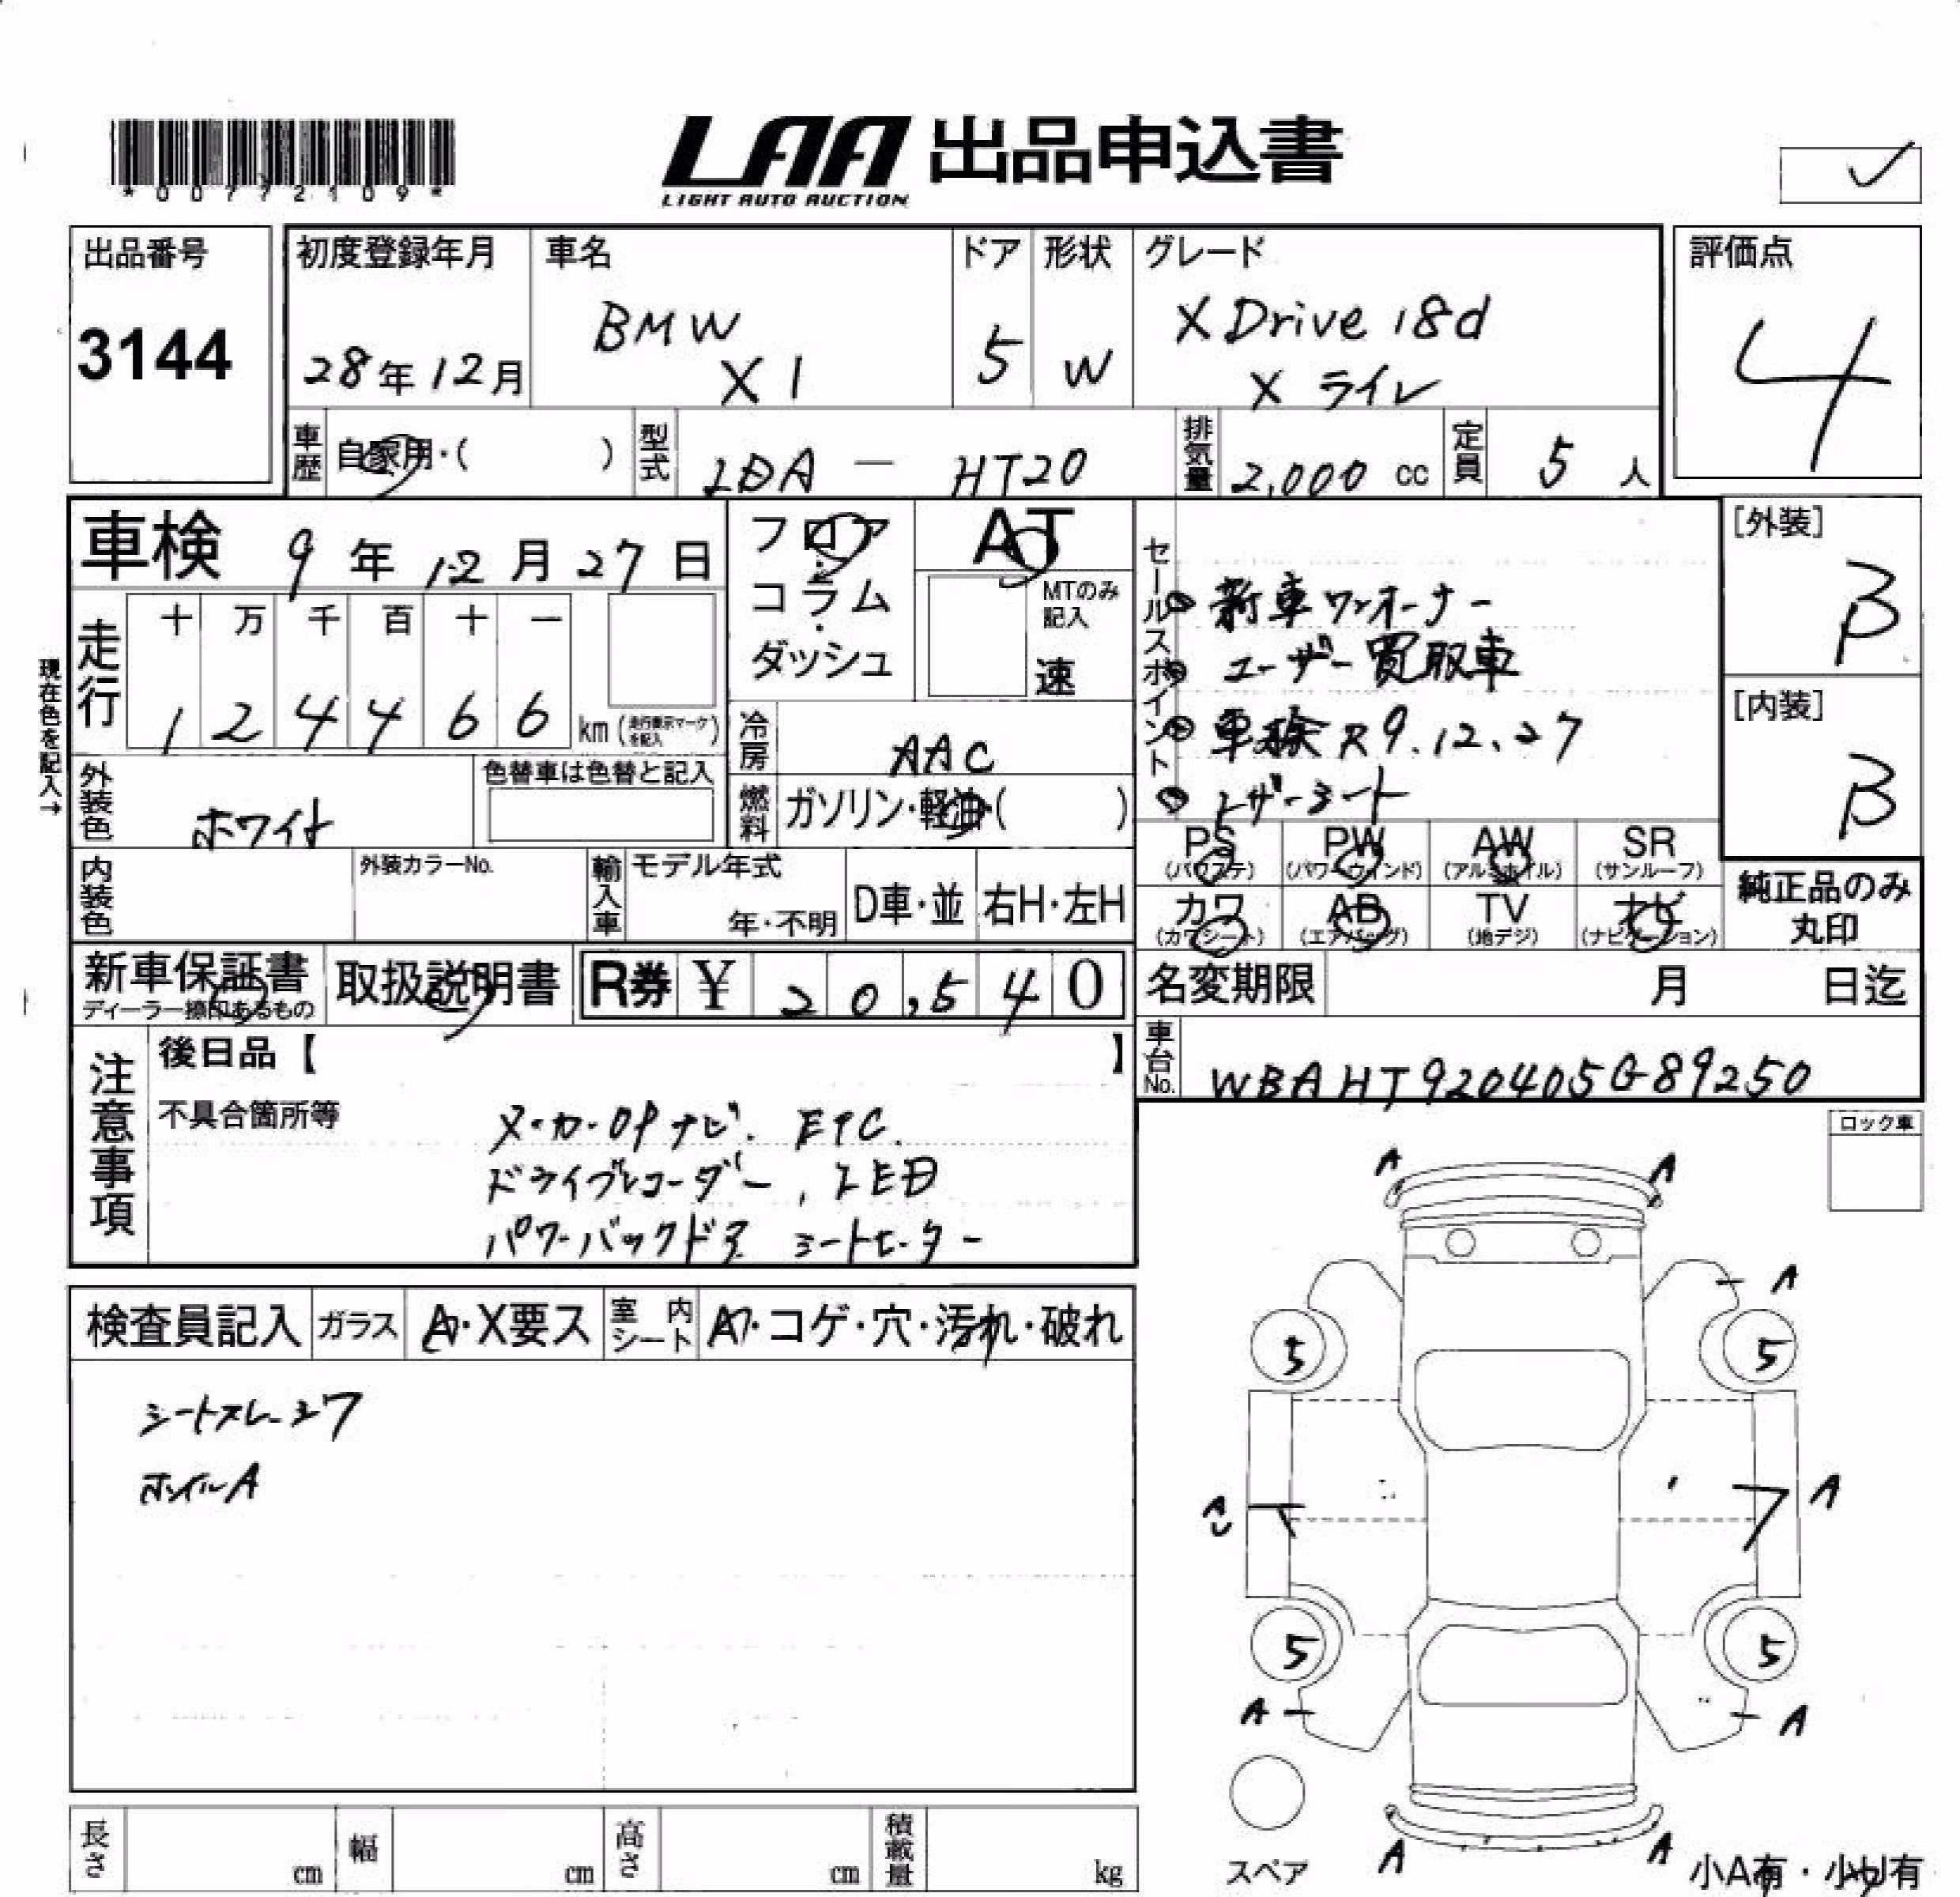 *00772109*
LAA 出品申込書
LIGHT AUTO AUCTION
出品番号
3144
初度登録年月
28年12月
車名
BMW
X1
ドア
5
形状
W
グレード
X Drive 18d
X ライン
評価点
4
車歴
自家用・( )
型式
LDA - HT20
排気量
2,000 cc
定員
5 人
車検 9年12月27日
フロア・コラム・ダッシュ
AT
MTのみ記入
速
走行
十 万 千 百 十 一
1 2 4 4 6 6 km (走行表示マークを記入)
現在色を記入→
冷房
AAC
外装色
ホワイト
色替車は色替と記入
燃料
ガソリン・軽油・( )
内装色
外装カラーNo.
輸入車
モデル年式
年・不明
D車・並
右H・左H
新車保証書
ディーラー捺印あるもの
取扱説明書
R券 ¥ 20,540
セールスポイント
新車ワンオーナー
ユーザー買取車
車検R9.12.27
レザーシート
[外装]
B
[内装]
B
PS (パワステ)
PW (パワーウィンド)
AW (アルミホイル)
SR (サンルーフ)
カワ (カワシート)
AB (エアバッグ)
TV (地デジ)
ナビ (ナビゲーション)
純正品のみ丸印
名変期限 月 日迄
車台No.
WBAHT920405G89250
注意事項
後日品【 】
不具合箇所等
メーカーOPナビ. ETC.
ドライブレコーダー, LED
パワーバックドア シートヒーター
ロック車
検査員記入
ガラス
A・X要ス
室内シート
コゲ・穴・汚れ・破れ
シートスレ・シワ
ホイルA
A A
A
5 5
A
A
5 5
A A
A A
スペア
小A有・小U有
長さ cm
幅 cm
高さ cm
積載量 kg